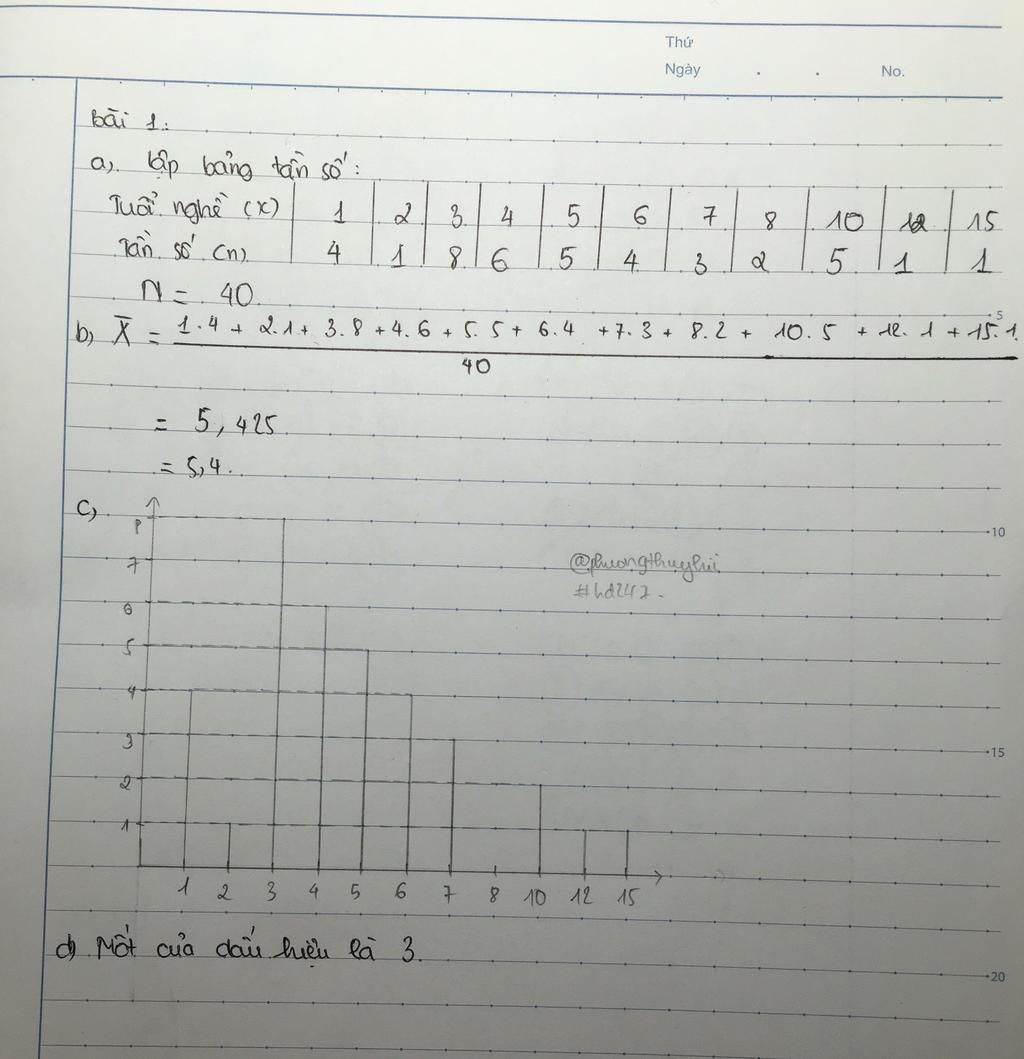 Thứ
Ngày . . No.
Bài 1:
a). lập bảng tần số:
Tuổi nghề (x) | 1 | 2 | 3 | 4 | 5 | 6 | 7 | 8 | 10 | 12 | 15
Tần số (n) 4 | 1 | 8 | 6 | 5 | 4 | 3 | 2 | 5 | 1 | 1
N = 40
5
b) X̄ = 1.4 + 2.1 + 3.8 + 4.6 + 5.5 + 6.4 + 7.3 + 8.2 + 10.5 + 12.1 + 15.1
40
= 5,425
= 5,4.
c)
8
10
7
@phuongthuyhii
#hd247.
6
5
4
3
15
2
1
1 2 3 4 5 6 7 8 10 12 15
d) Mốt của dấu hiệu là 3.
20